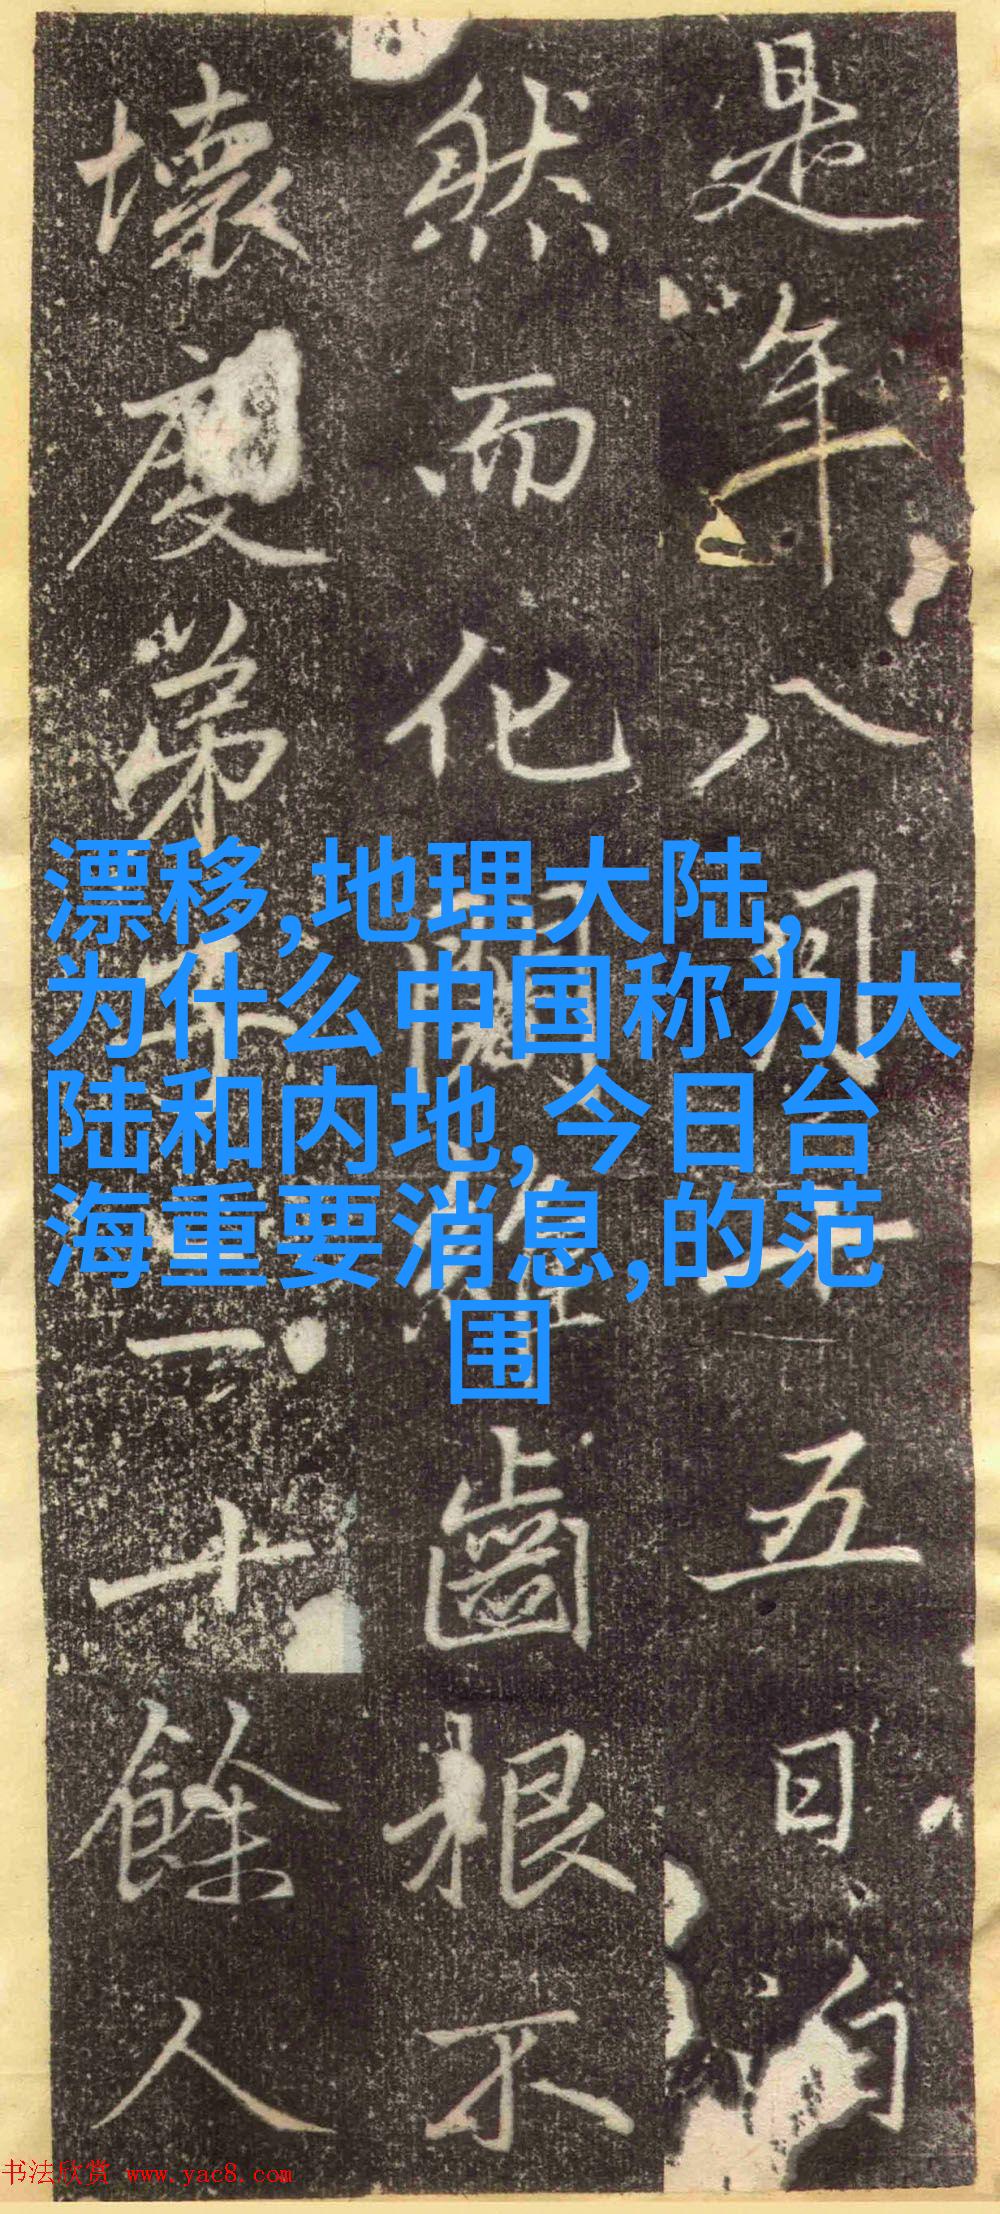 是年八月一五日自
然而化閻維齒根不
壞度弟子一十餘人
漂移,地理大陆,
为什么中国称为大
陆和内地,今日台
海重要消息,的范
围
书法欣赏 www.yac8.com